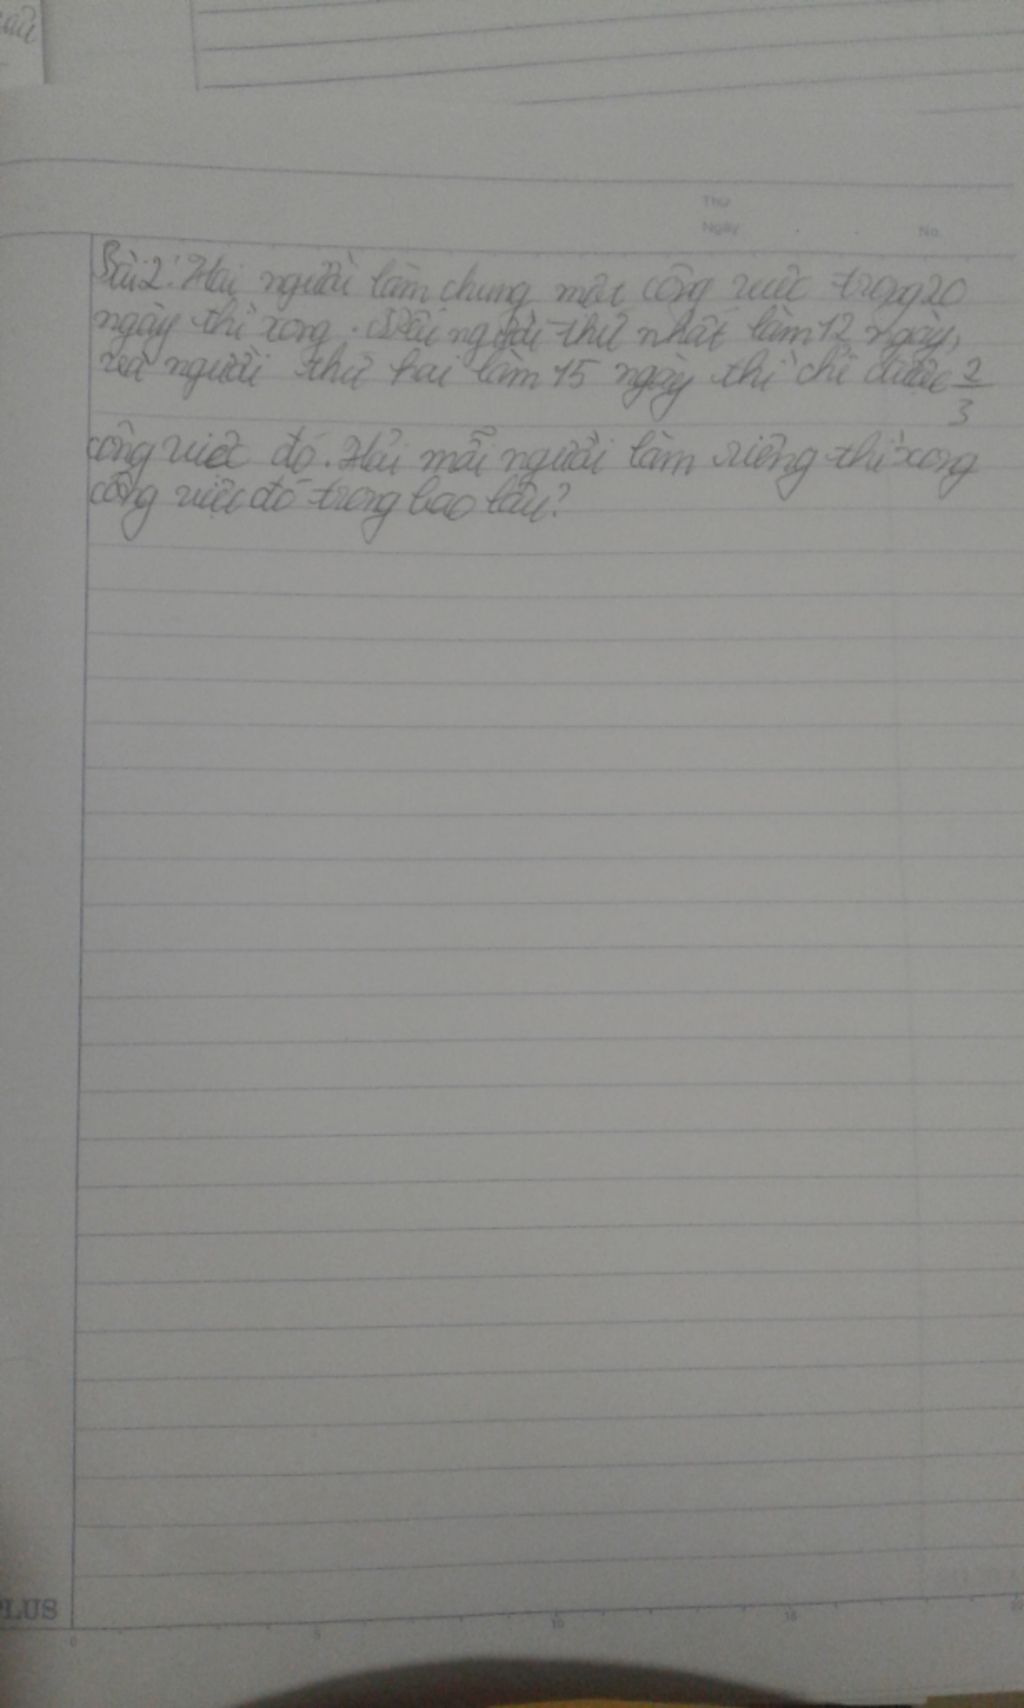 Thứ
Ngày
No.
Bài 2: Hai người làm chung một công việc trong 20
ngày thì xong. Nếu người thứ nhất làm 12 ngày,
và người thứ hai làm 15 ngày thì chỉ được 2/3
công việc đó. Hỏi mỗi người làm riêng thì xong
công việc đó trong bao lâu?
PLUS
0 5 10 15 20